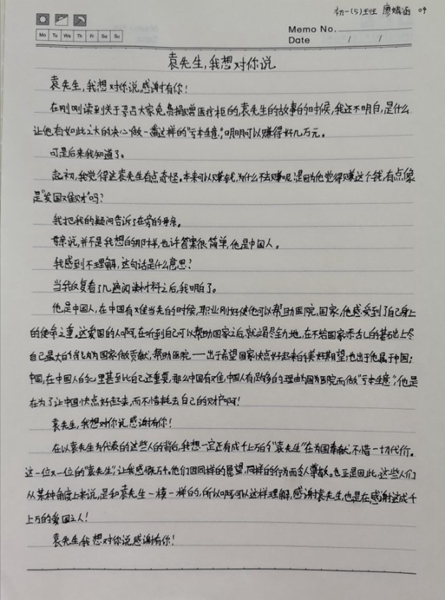 初一(5)班 廖
Memo No.
Mo Tu We Th Fr Sa Su
Date / /
袁先生,我想对你说
袁先生,我想对你说,感谢有你!
在刚刚读到关于 大家免费捐赠医疗柜的袁先生的故事的时候,我还不明白,是什么
让他有如此之大的决心做一桩这样的“亏本生意”,明明可以赚得好几万元。
可是后来我知道了。
起初,我觉得这袁先生有点奇怪。本来可以赚钱,为什么不去赚呢?是因为他觉得赚这个钱,有点像
是“发国难财”吗?
我把我的疑问告诉了 的母亲。
母亲说,并不是我想的那样,也许答案很简单,他是中国人。
我感到不理解,这句话是什么意思?
当我反复看了几遍阅读材料之后,我明白了。
他是中国人,在中国有难当先的时候,职业刚好使他可以帮助医院,国家,他感受到了自己身上
的使命之重,这爱国的人啊,在听到自己可以帮助国家之后,就义不容辞地,在不给国家添乱的基础上尽
自己最大的 为国家做贡献,帮助医院——出于希望国家快点好起来的美好期望;也出于他属于中国;
中国,在中国人的心里甚至比自己还重要,那么中国有难,中国人有足够的理由 国 而做“亏本生意”,他是
在为了让中国快点好起来,而不惜耗去自己的财产啊!
袁先生,我想对你说,感谢有你!
在以袁先生为代表的这些人的背后,我想一定还有成千上万的“袁先生”在为国奉献,不惜一切代价。
这一位又一位的“袁先生”,让我感动万千。他们因同样的愿望,同样的行为而令人尊敬。也正是因此,这些人们
从某种角度上来说,是和袁先生一模一样的,所以啊,可以这样理解,感谢袁先生,也是在感谢这成千
上万的爱国之人!
袁先生,我想对你说,感谢有你!